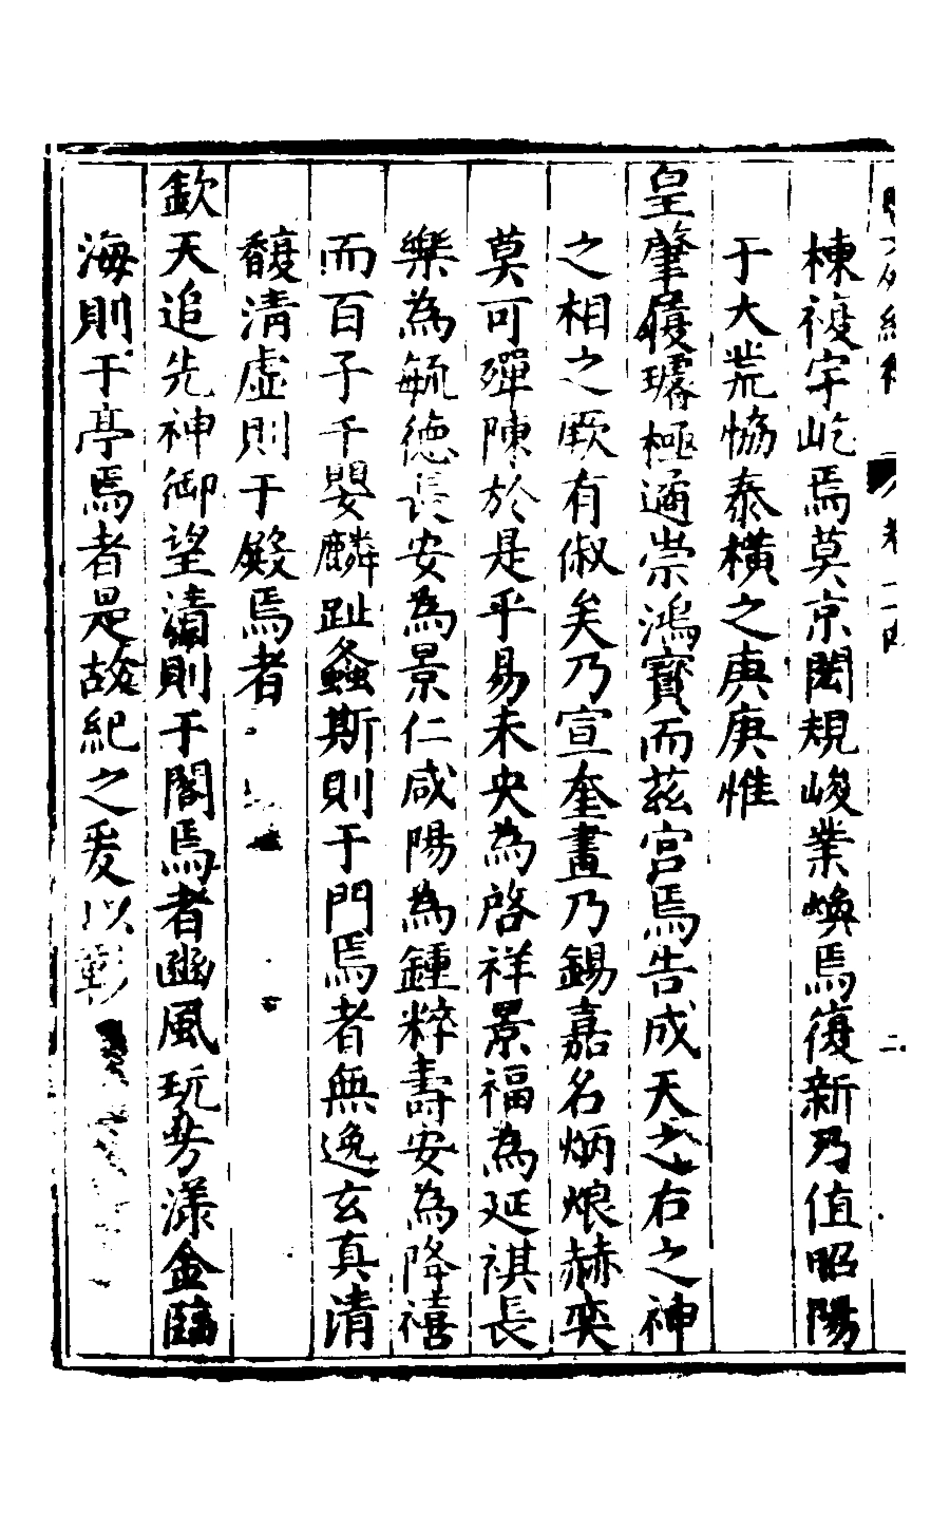 棟複宇屹焉莫京閎規峻業煥焉復新乃值昭陽
于大荒協泰橫之庚庚惟
皇肇履璿極遹崇鴻寳而茲宫焉告成天之右之神
之相之厥有俶矣乃宣奎畫乃錫嘉名炳烺赫奕
莫可殫陳於是乎易未央為啓祥景福為延祺長
樂為毓德長安為景仁咸陽為鍾粹壽安為降禧
而百子千嬰麟趾螽斯則于門焉者無逸玄真清
馥清虛則于殿焉者
欽天追先神御望瀆則于閣焉者豳風玩芳漾金臨
海則于亭焉者是故紀之爰以彰